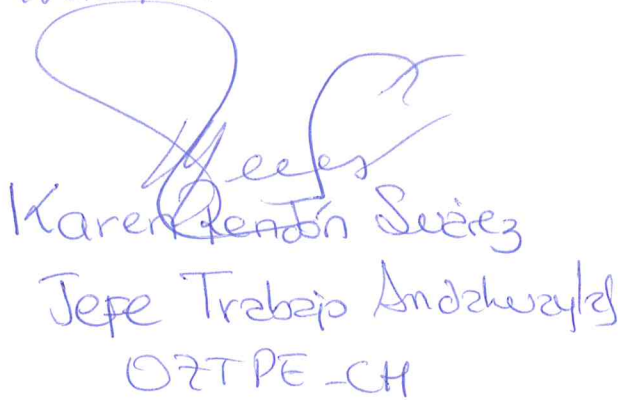 Karen Rendón Suárez
Jefe Trabajo Andahuaylas
OZTPE-CH